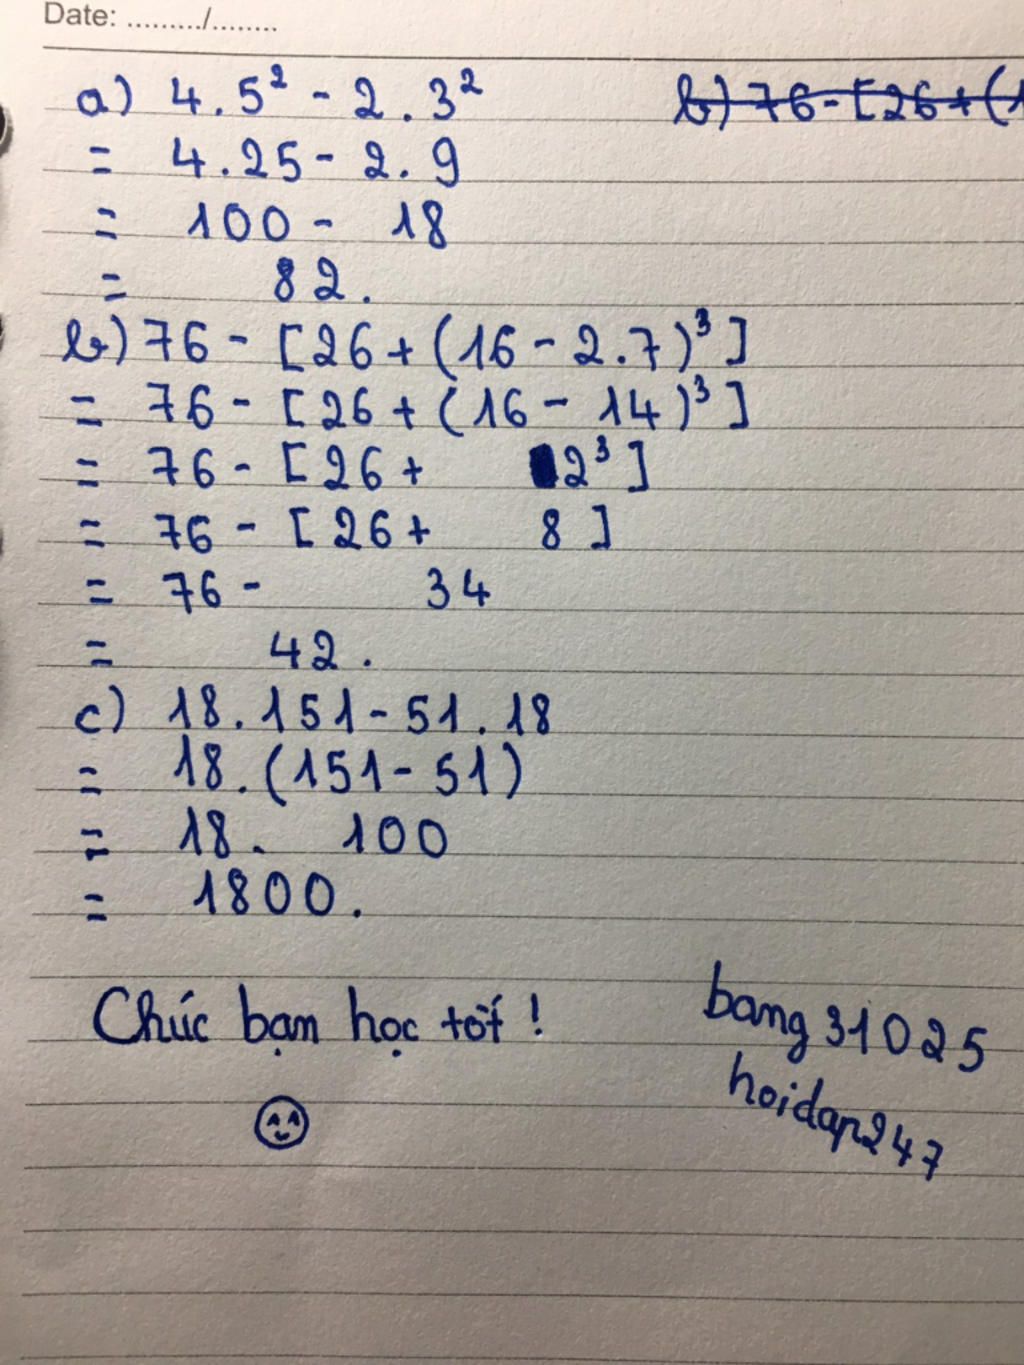 Date: ........./........
a) 4.5² - 2.3²
b) 76-[26+(1
= 4.25 - 2.9
= 100 - 18
= 82.
b) 76 - [26 + (16 - 2.7)³]
= 76 - [26 + (16 - 14)³]
= 76 - [26 + 2³]
= 76 - [26 + 8]
= 76 - 34
= 42.
c) 18.151 - 51.18
= 18.(151 - 51)
= 18. 100
= 1800.
Chúc bạn học tốt!
bang31025
hoidap247